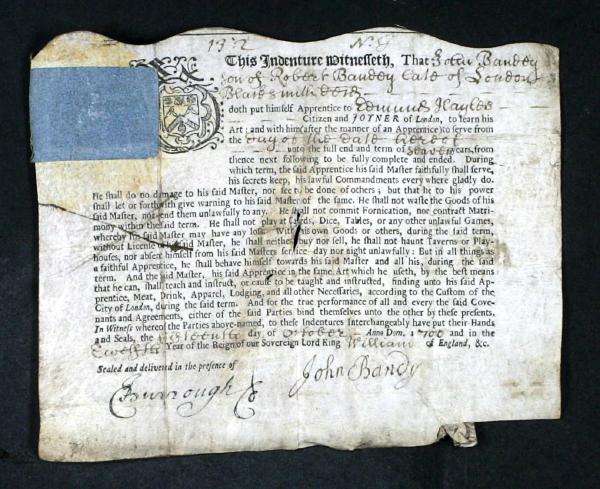 This Indenture Witnesseth, That John Bandey
son of Robert Bandey Late of London
Blacksmith decd
doth put himself Apprentice to Edmund
Citizen and JOYNER of London, to learn his
Art; and with him (after the manner of an Apprentice) to serve from
the day of the date hereof
unto the full end and term of seaven years, from
thence next following to be fully complete and ended. During
which term, the said Apprentice his said Master faithfully shall serve,
his secrets keep, his lawful Commandments every where gladly do.
He shall do no damage to his said Master, nor see to be done of others; but that he to his power
shall let or forthwith give warning to his said Master of the same. He shall not waste the Goods of his
said Master, nor lend them unlawfully to any. He shall not commit Fornication, nor contract Matri-
mony within the said term. He shall not play at Cards, Dice, Tables, or any other unlawful Games,
whereby his said Master may have any loss. With his own Goods or others, during the said term,
without License of his said Master, he shall neither buy nor sell, he shall not haunt Taverns or Play-
houses, nor absent himself from his said Masters service day nor night unlawfully: But in all things as
a faithful Apprentice, he shall behave himself towards his said Master and all his, during the said
term. And the said Master, his said Apprentice in the same Art which he useth, by the best means
that he can, shall teach and instruct, or cause to be taught and instructed, finding unto his said Ap-
prentice, Meat, Drink, Apparel, Lodging, and all other Necessaries, according to the Custom of the
City of London, during the said term. And for the true performance of all and every the said Cove-
nants and Agreements, either of the said Parties bind themselves unto the other by these presents.
In Witness whereof the Parties above-named, to these Indentures Interchangeably have put their Hands
and Seals, the day of October Anno Dom. 1700 and in the
Twelfth Year of the Reign of our Sovereign Lord King William of England, &c.
Sealed and delivered in the presence of
John Bandy